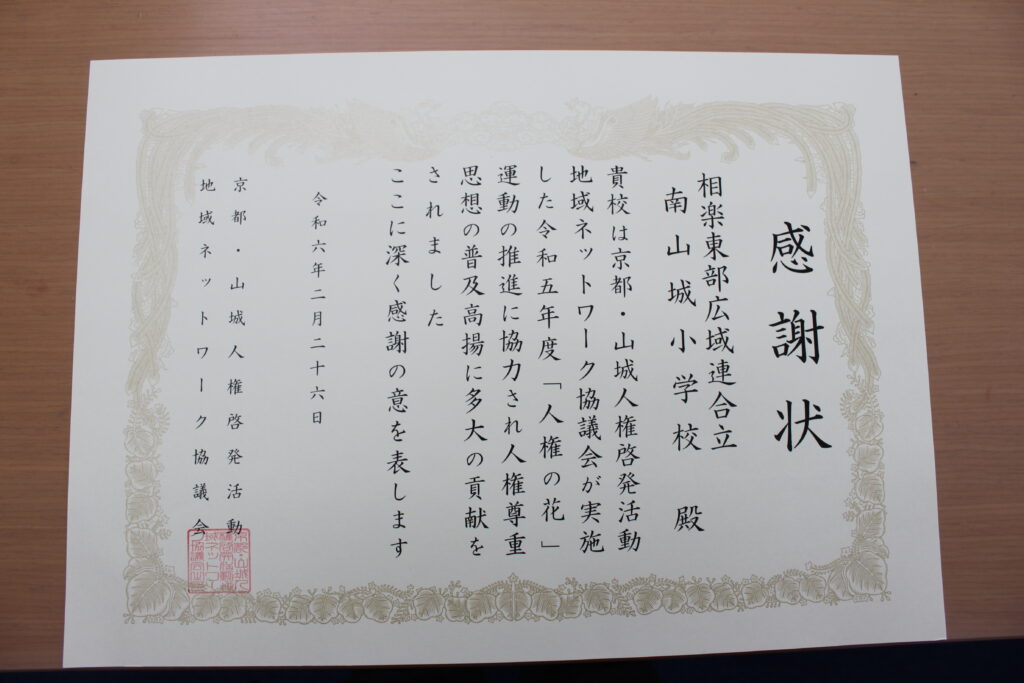 感謝状
相楽東部広域連合立
南山城小学校 殿
貴校は京都・山城人権啓発活動
地域ネットワーク協議会が実施
した令和五年度「人権の花」
運動の推進に協力され人権尊重
思想の普及高揚に多大の貢献を
されました
ここに深く感謝の意を表します
令和六年二月二十六日
京都・山城人権啓発活動
地域ネットワーク協議会